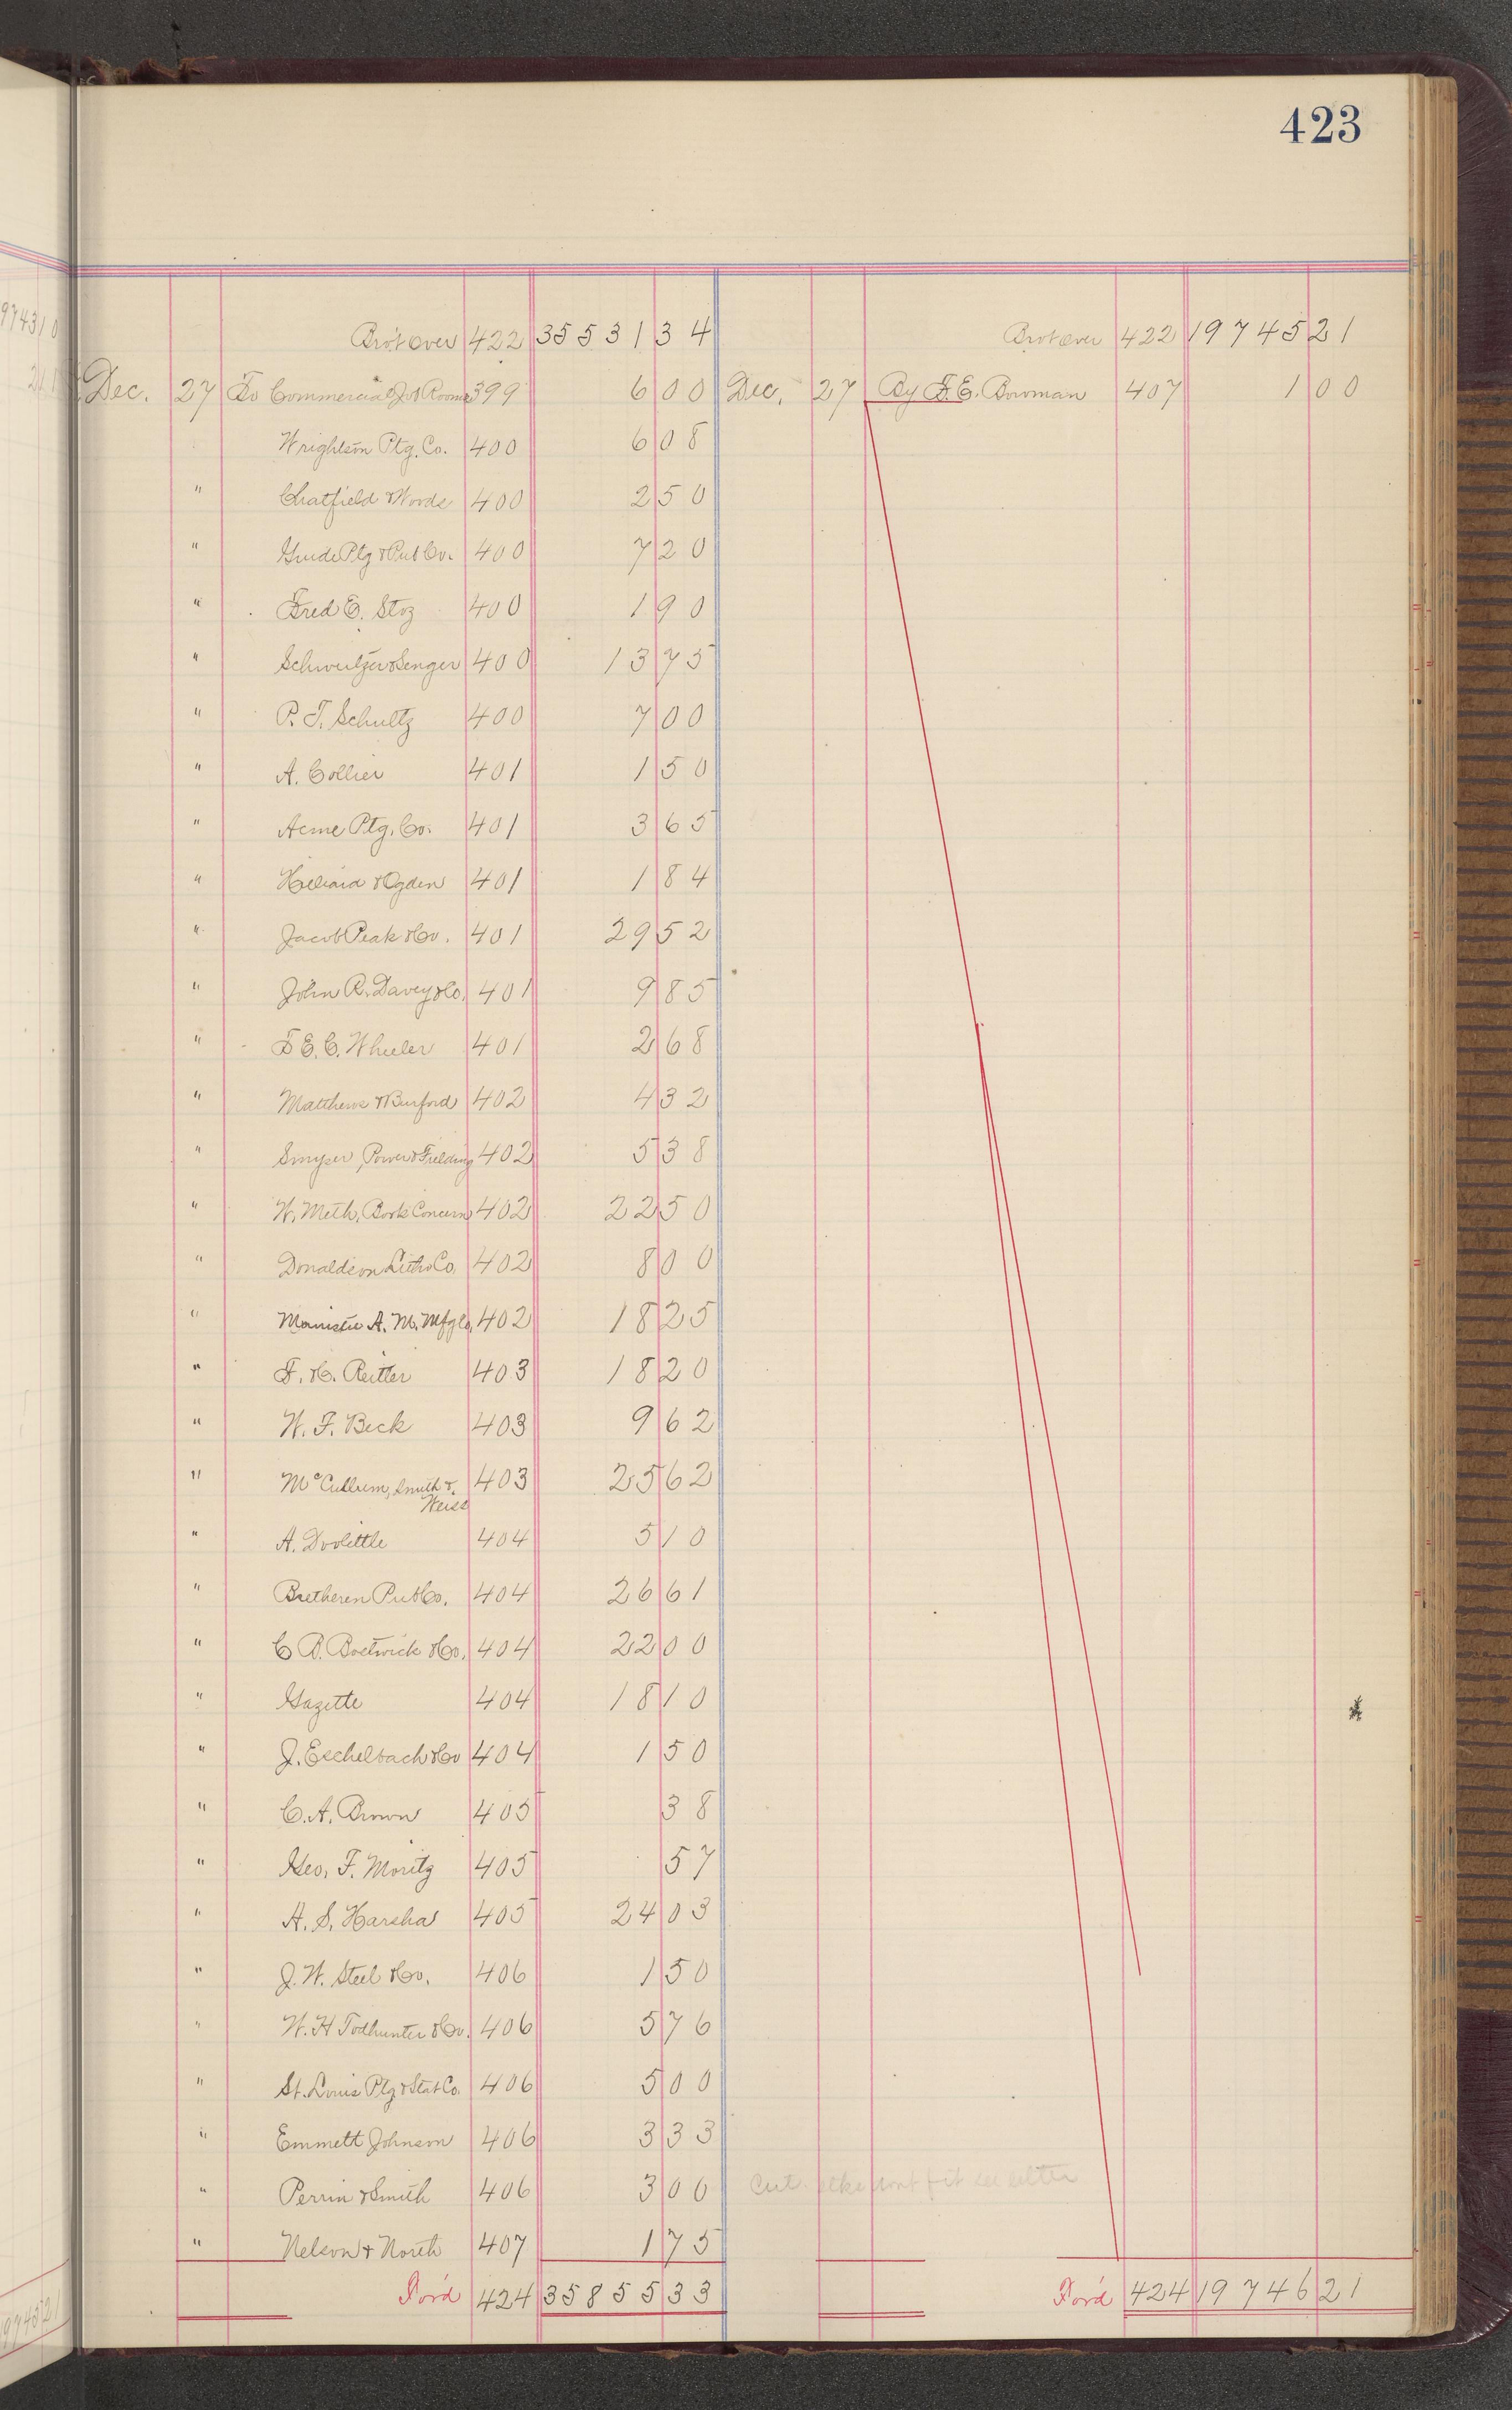 423
Bro't over 422 35531 34 Bro't over 422 19745 21
Dec. 27 To Commercial Job Rooms 399 6 00 Dec. 27 By F. E. Bowman 407 1 00
Wrightson Ptg. Co. 400 6 08
" Chatfield & Woods 400 2 50
" Guide Ptg & Pub Co. 400 7 20
" Fred E. Stoz 400 1 90
" 400 13 75
" P. T. Schultz 400 7 00
" A. Collier 401 1 50
" Acme Ptg. Co. 401 3 65
" & Ogden 401 1 84
" Jacob Peak & Co. 401 29 52
" John R. Davey & Co. 401 9 85
" E. C. Wheeler 401 2 68
" Matthews & Burford 402 4 32
" Smyser, Power & Fielding 402 5 38
" W. Meth. Book Concern 402 22 50
" Donaldson Litho Co. 402 8 00
" Manistee A. M. Mfg Co. 402 18 25
" F. H. Reitter 403 18 20
" W. F. Beck 403 9 62
" McCullum, Smith & 403 25 62
Weiss
" A. Doolittle 404 5 10
" Bretheren Pub Co. 404 26 61
" C B. Bostwick & Co. 404 22 00
" Gazette 404 18 10
" J. Eschelbach & Co 404 1 50
" C. A. Brown 405 38
" Geo. F. Moritz 405 57
" A. S. Harsha 405 24 03
" J. W. Steel & Co. 406 1 50
" W. H Todhunter & Co. 406 5 76
" St. Louis Ptg & Stat Co. 406 5 00
" Emmett Johnson 406 3 33
" Perrin & Smith 406 3 00
" Nelson & North 407 1 75
For'd 424 35855 33 For'd 424 19746 21